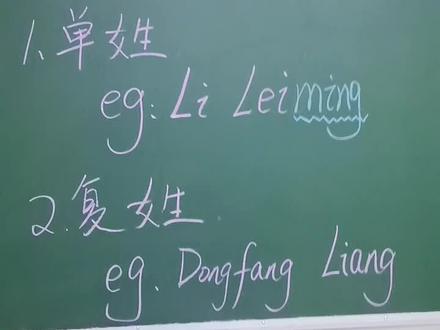 1.单姓
eg: Li Leiming
2.复姓
eg. Dongfang Liang